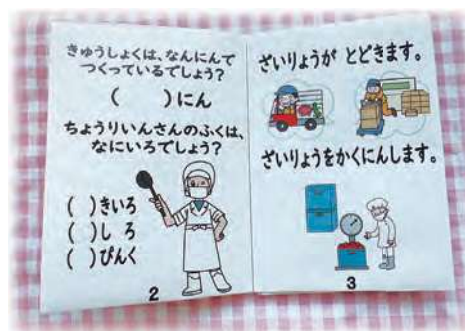 きゅうしょくは、なんにんで
つくっているでしょう？
(　　)にん
ちょうりいんさんのふくは、
なにいろでしょう？
(　)きいろ
(　)しろ
(　)ぴんく
2
ざいりょうが とどきます。
ざいりょうをかくにんします。
3